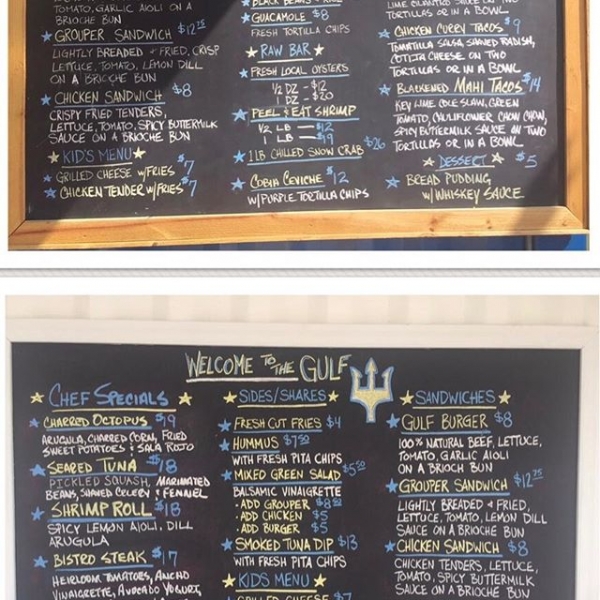 TOMATO, GARLIC AIOLI ON A
BRIOCHE BUN
GROUPER SANDWICH $12.75
LIGHTLY BREADED + FRIED, CRISP
LETTUCE, TOMATO, LEMON DILL
ON A BRIOCHE BUN
CHICKEN SANDWICH $8
CRISPY FRIED TENDERS,
LETTUCE, TOMATO, SPICY BUTTERMILK
SAUCE ON A BRIOCHE BUN
KID'S MENU
GRILLED CHEESE W/FRIES $7
CHICKEN TENDER W/FRIES $7
GUACAMOLE $8
FRESH TORTILLA CHIPS
RAW BAR
FRESH LOCAL OYSTERS
1/2 DZ - $12
1 DZ - $20
PEEL & EAT SHRIMP
1/2 LB - $12
1 LB - $19
1 LB CHILLED SNOW CRAB $26
COBIA CEVICHE $12
W/PURPLE TORTILLA CHIPS
TORTILLAS OR IN A BOWL
CHICKEN CURRY TACOS $9
TOMATILLA SALSA, SHAVED RADISH,
COTIJA CHEESE ON TWO
TORTILLAS OR IN A BOWL
BLACKENED MAHI TACOS $14
KEY LIME COLE SLAW, GREEN
TOMATO, CAULIFLOWER CHOW CHOW,
SPICY BUTTERMILK SAUCE ON TWO
TORTILLAS OR IN A BOWL
DESSERT $5
BREAD PUDDING
W/WHISKEY SAUCE
WELCOME TO THE GULF
CHEF SPECIALS
CHARRED OCTOPUS $19
ARUGULA, CHARRED CORN, FRIED
SWEET POTATOES & SALA ROJO
SEARED TUNA $18
PICKLED SQUASH, MARINATED
BEANS, SHAVED CELERY & FENNEL
SHRIMP ROLL $18
SPICY LEMON AIOLI, DILL
ARUGULA
BISTRO STEAK $17
HEIRLOOM TOMATOES, ANCHO
VINAIGRETTE, AVOCADO YOGURT,
SIDES/SHARES
FRESH CUT FRIES $4
HUMMUS $7.50
WITH FRESH PITA CHIPS
MIXED GREEN SALAD $5.50
BALSAMIC VINAIGRETTE
- ADD GROUPER
- ADD CHICKEN $5
- ADD BURGER $5
SMOKED TUNA DIP $13
WITH FRESH PITA CHIPS
KIDS MENU
GRILLED CHEESE $7
SANDWICHES
GULF BURGER $8
100% NATURAL BEEF, LETTUCE,
TOMATO, GARLIC AIOLI
ON A BRIOCH BUN
GROUPER SANDWICH $12.75
LIGHTLY BREADED + FRIED,
LETTUCE, TOMATO, LEMON DILL
SAUCE ON A BRIOCHE BUN
CHICKEN SANDWICH $8
CHICKEN TENDERS, LETTUCE,
TOMATO, SPICY BUTTERMILK
SAUCE ON A BRIOCHE BUN